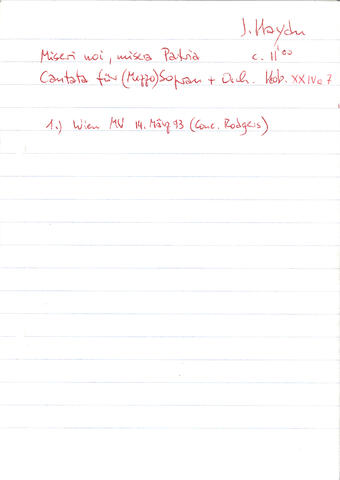 J. Haydn
Miseri noi, misera Patria c. 11'00
Cantata für (Mezzo)Sopran + Orch. Hob. XXIVa7
1.) Wien MV 14. März 93 (Conc. Rodgers)